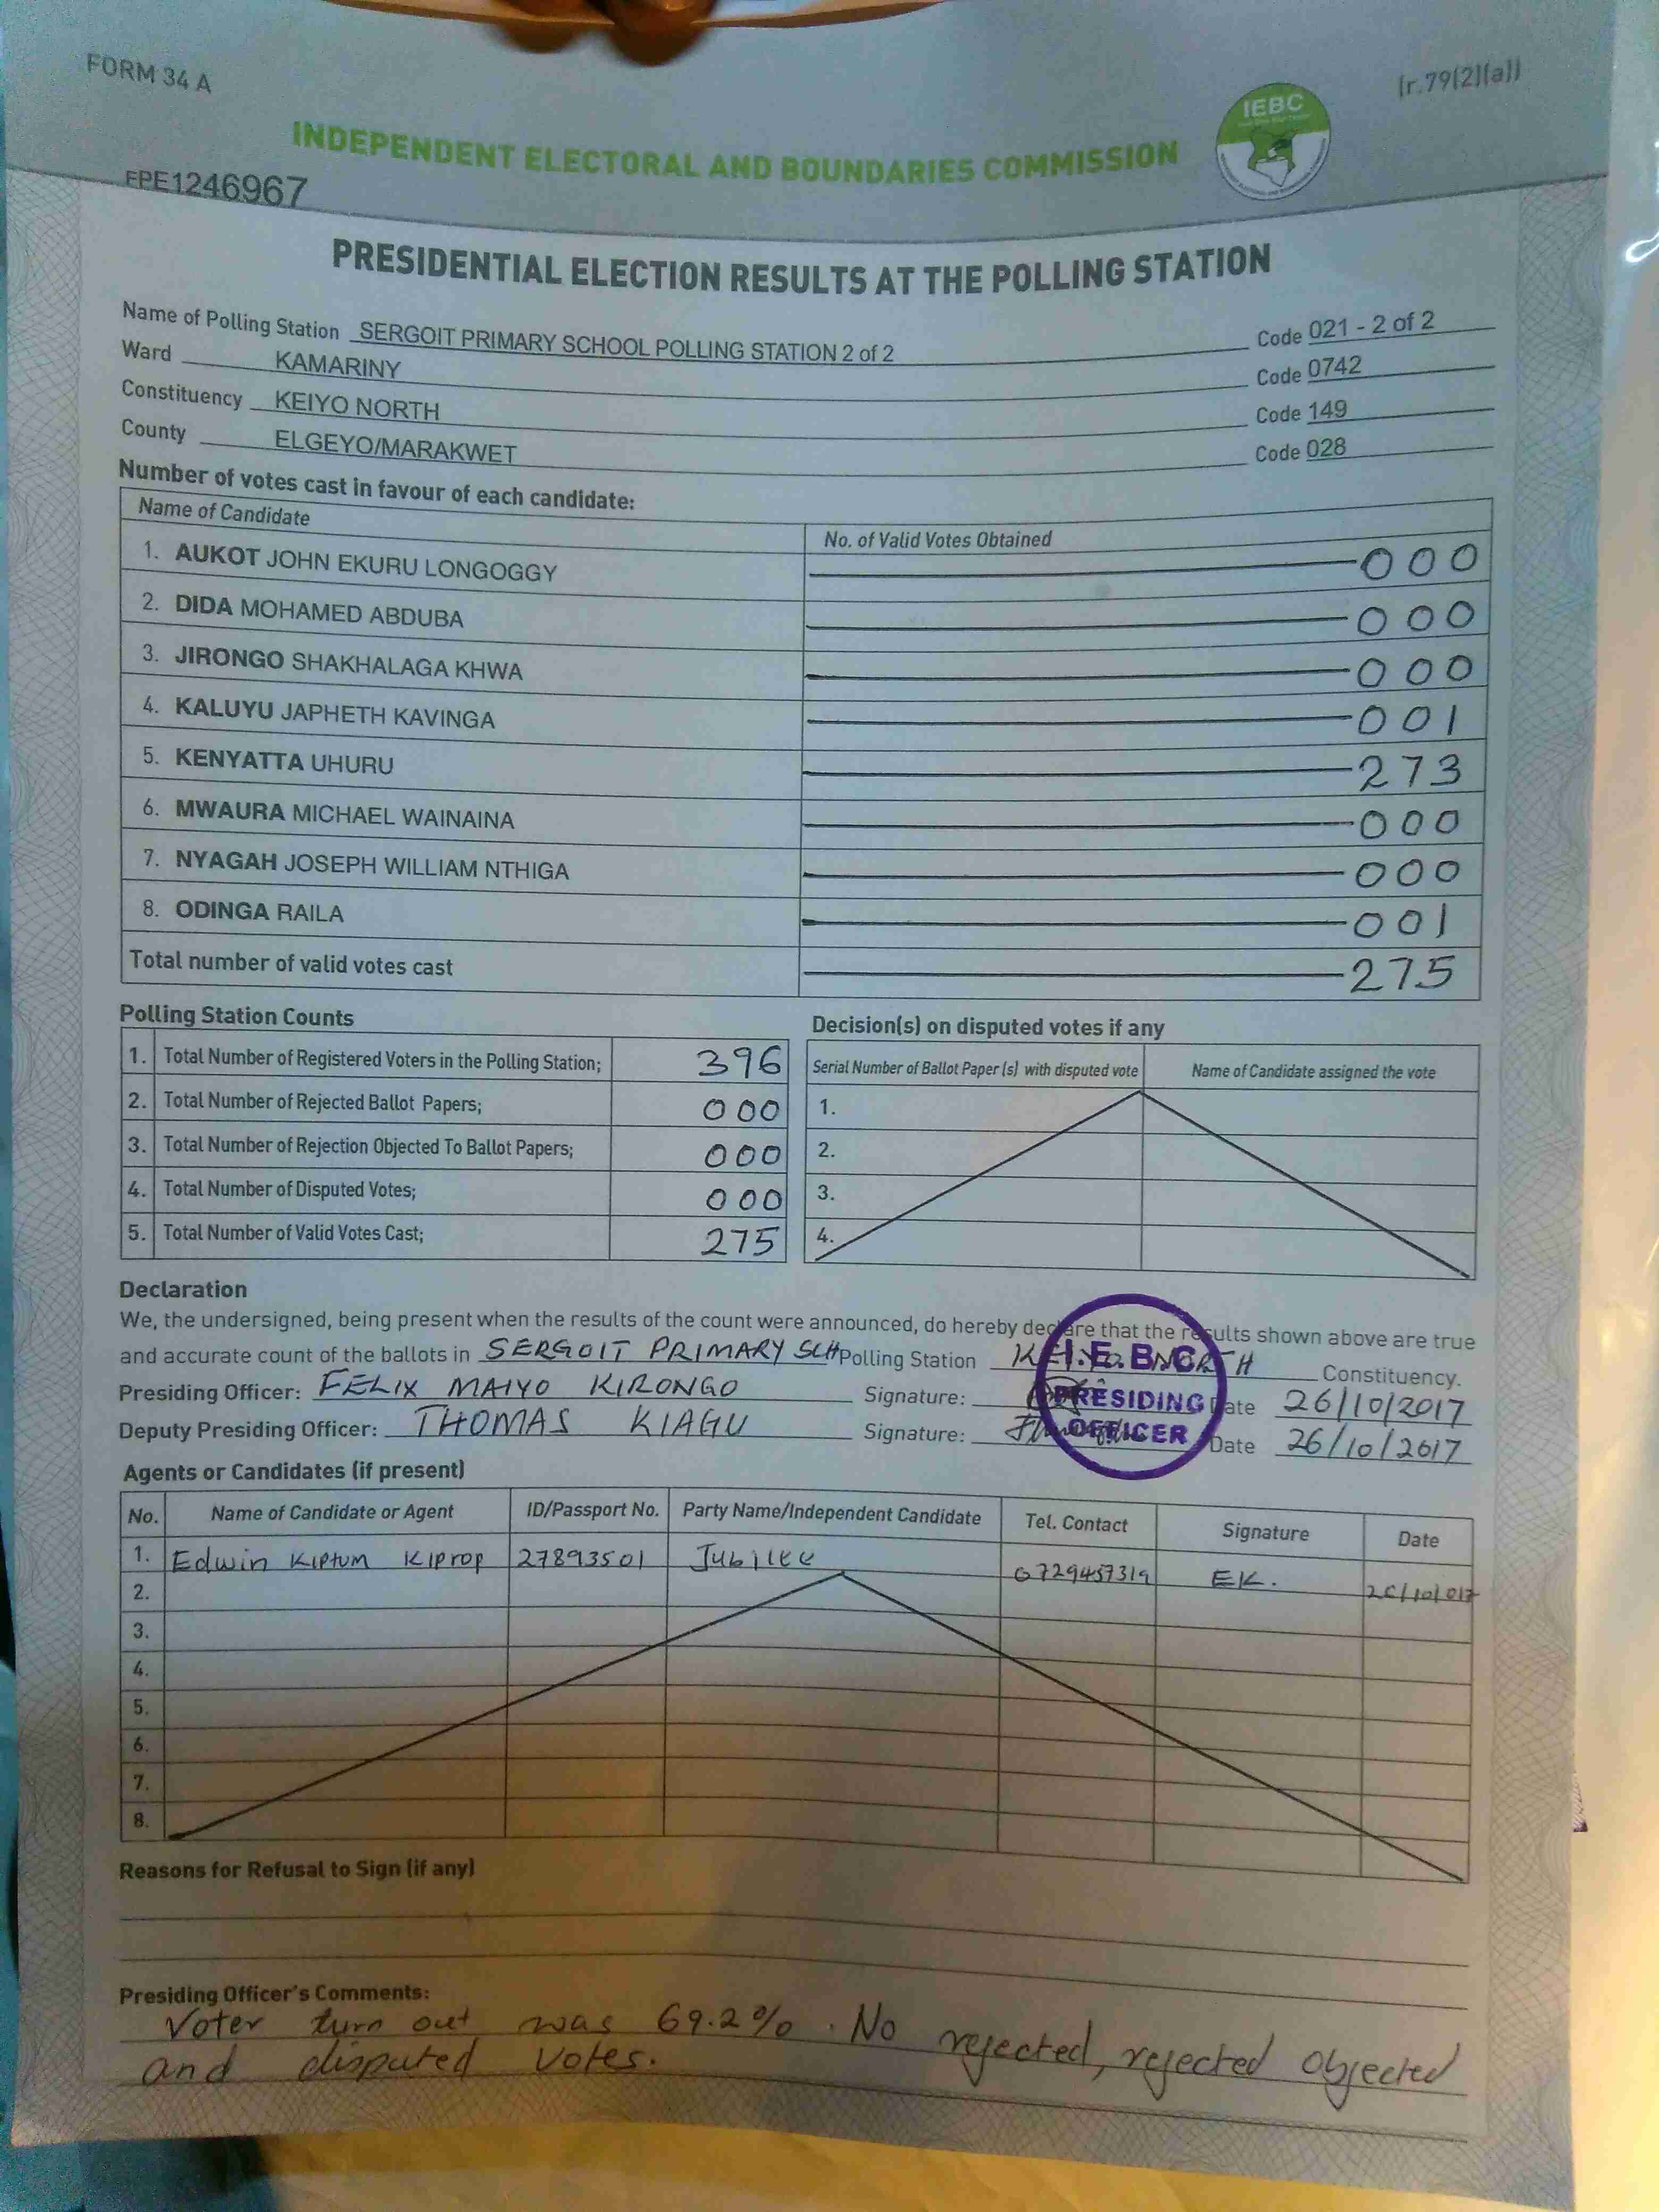 FORM 34 A
(r.79(2)(a))
IEBC
INDEPENDENT ELECTORAL AND BOUNDARIES COMMISSION
FPE1246967
PRESIDENTIAL ELECTION RESULTS AT THE POLLING STATION
Name of Polling Station SERGOIT PRIMARY SCHOOL POLLING STATION 2 of 2 Code 021 - 2 of 2
Ward KAMARINY Code 0742
Constituency KEIYO NORTH Code 149
County ELGEYO/MARAKWET Code 028
Number of votes cast in favour of each candidate:
Name of Candidate No. of Valid Votes Obtained
1. AUKOT JOHN EKURU LONGOGGY 000
2. DIDA MOHAMED ABDUBA 000
3. JIRONGO SHAKHALAGA KHWA 000
4. KALUYU JAPHETH KAVINGA 001
5. KENYATTA UHURU 273
6. MWAURA MICHAEL WAINAINA 000
7. NYAGAH JOSEPH WILLIAM NTHIGA 000
8. ODINGA RAILA 001
Total number of valid votes cast 275
Polling Station Counts
1. Total Number of Registered Voters in the Polling Station; 396
2. Total Number of Rejected Ballot Papers; 000
3. Total Number of Rejection Objected To Ballot Papers; 000
4. Total Number of Disputed Votes; 000
5. Total Number of Valid Votes Cast; 275
Decision(s) on disputed votes if any
Serial Number of Ballot Paper (s) with disputed vote Name of Candidate assigned the vote
1.
2.
3.
4.
Declaration
We, the undersigned, being present when the results of the count were announced, do hereby declare that the results shown above are true
and accurate count of the ballots in SERGOIT PRIMARY SCH Polling Station KEIYO NORTH Constituency.
Presiding Officer: FELIX MAIYO KIRONGO Signature: Date 26/10/2017
Deputy Presiding Officer: THOMAS KIAGU Signature: Date 26/10/2017
I.E.B.C
PRESIDING
OFFICER
Agents or Candidates (if present)
No. Name of Candidate or Agent ID/Passport No. Party Name/Independent Candidate Tel. Contact Signature Date
1. Edwin Kiptum Kiprop 27893501 Jubilee 0729457319 EK.
2.
3.
4.
5.
6.
7.
8.
Reasons for Refusal to Sign (if any)
Presiding Officer's Comments:
Voter turn out was 69.2%. No rejected, rejected objected
and disputed votes.